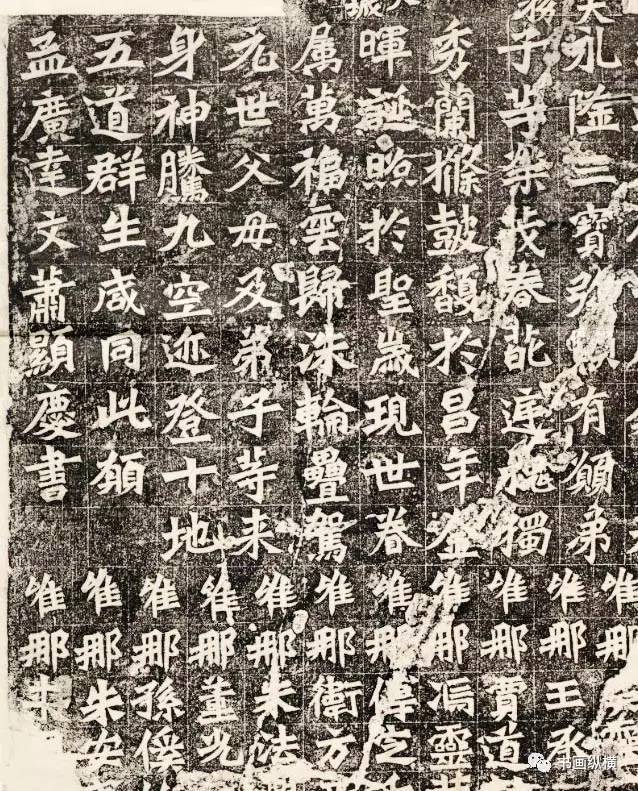 永隆三寶弥顯有願弟
子等榮茂春葩庭槐獨
秀蘭條鼓馥於昌年金
暉誕照於聖歳現世眷
属萬福雲歸洙輪疊駕
元世父母及弟子等来
身神騰九空迹登十地
五道群生咸同此願
孟廣達文蕭顯慶書
維那
維那王承
維那賈道
維那馮靈
維那
維那衛方
維那朱法
維那董光
維那孫
維那朱安
維那
书画纵横